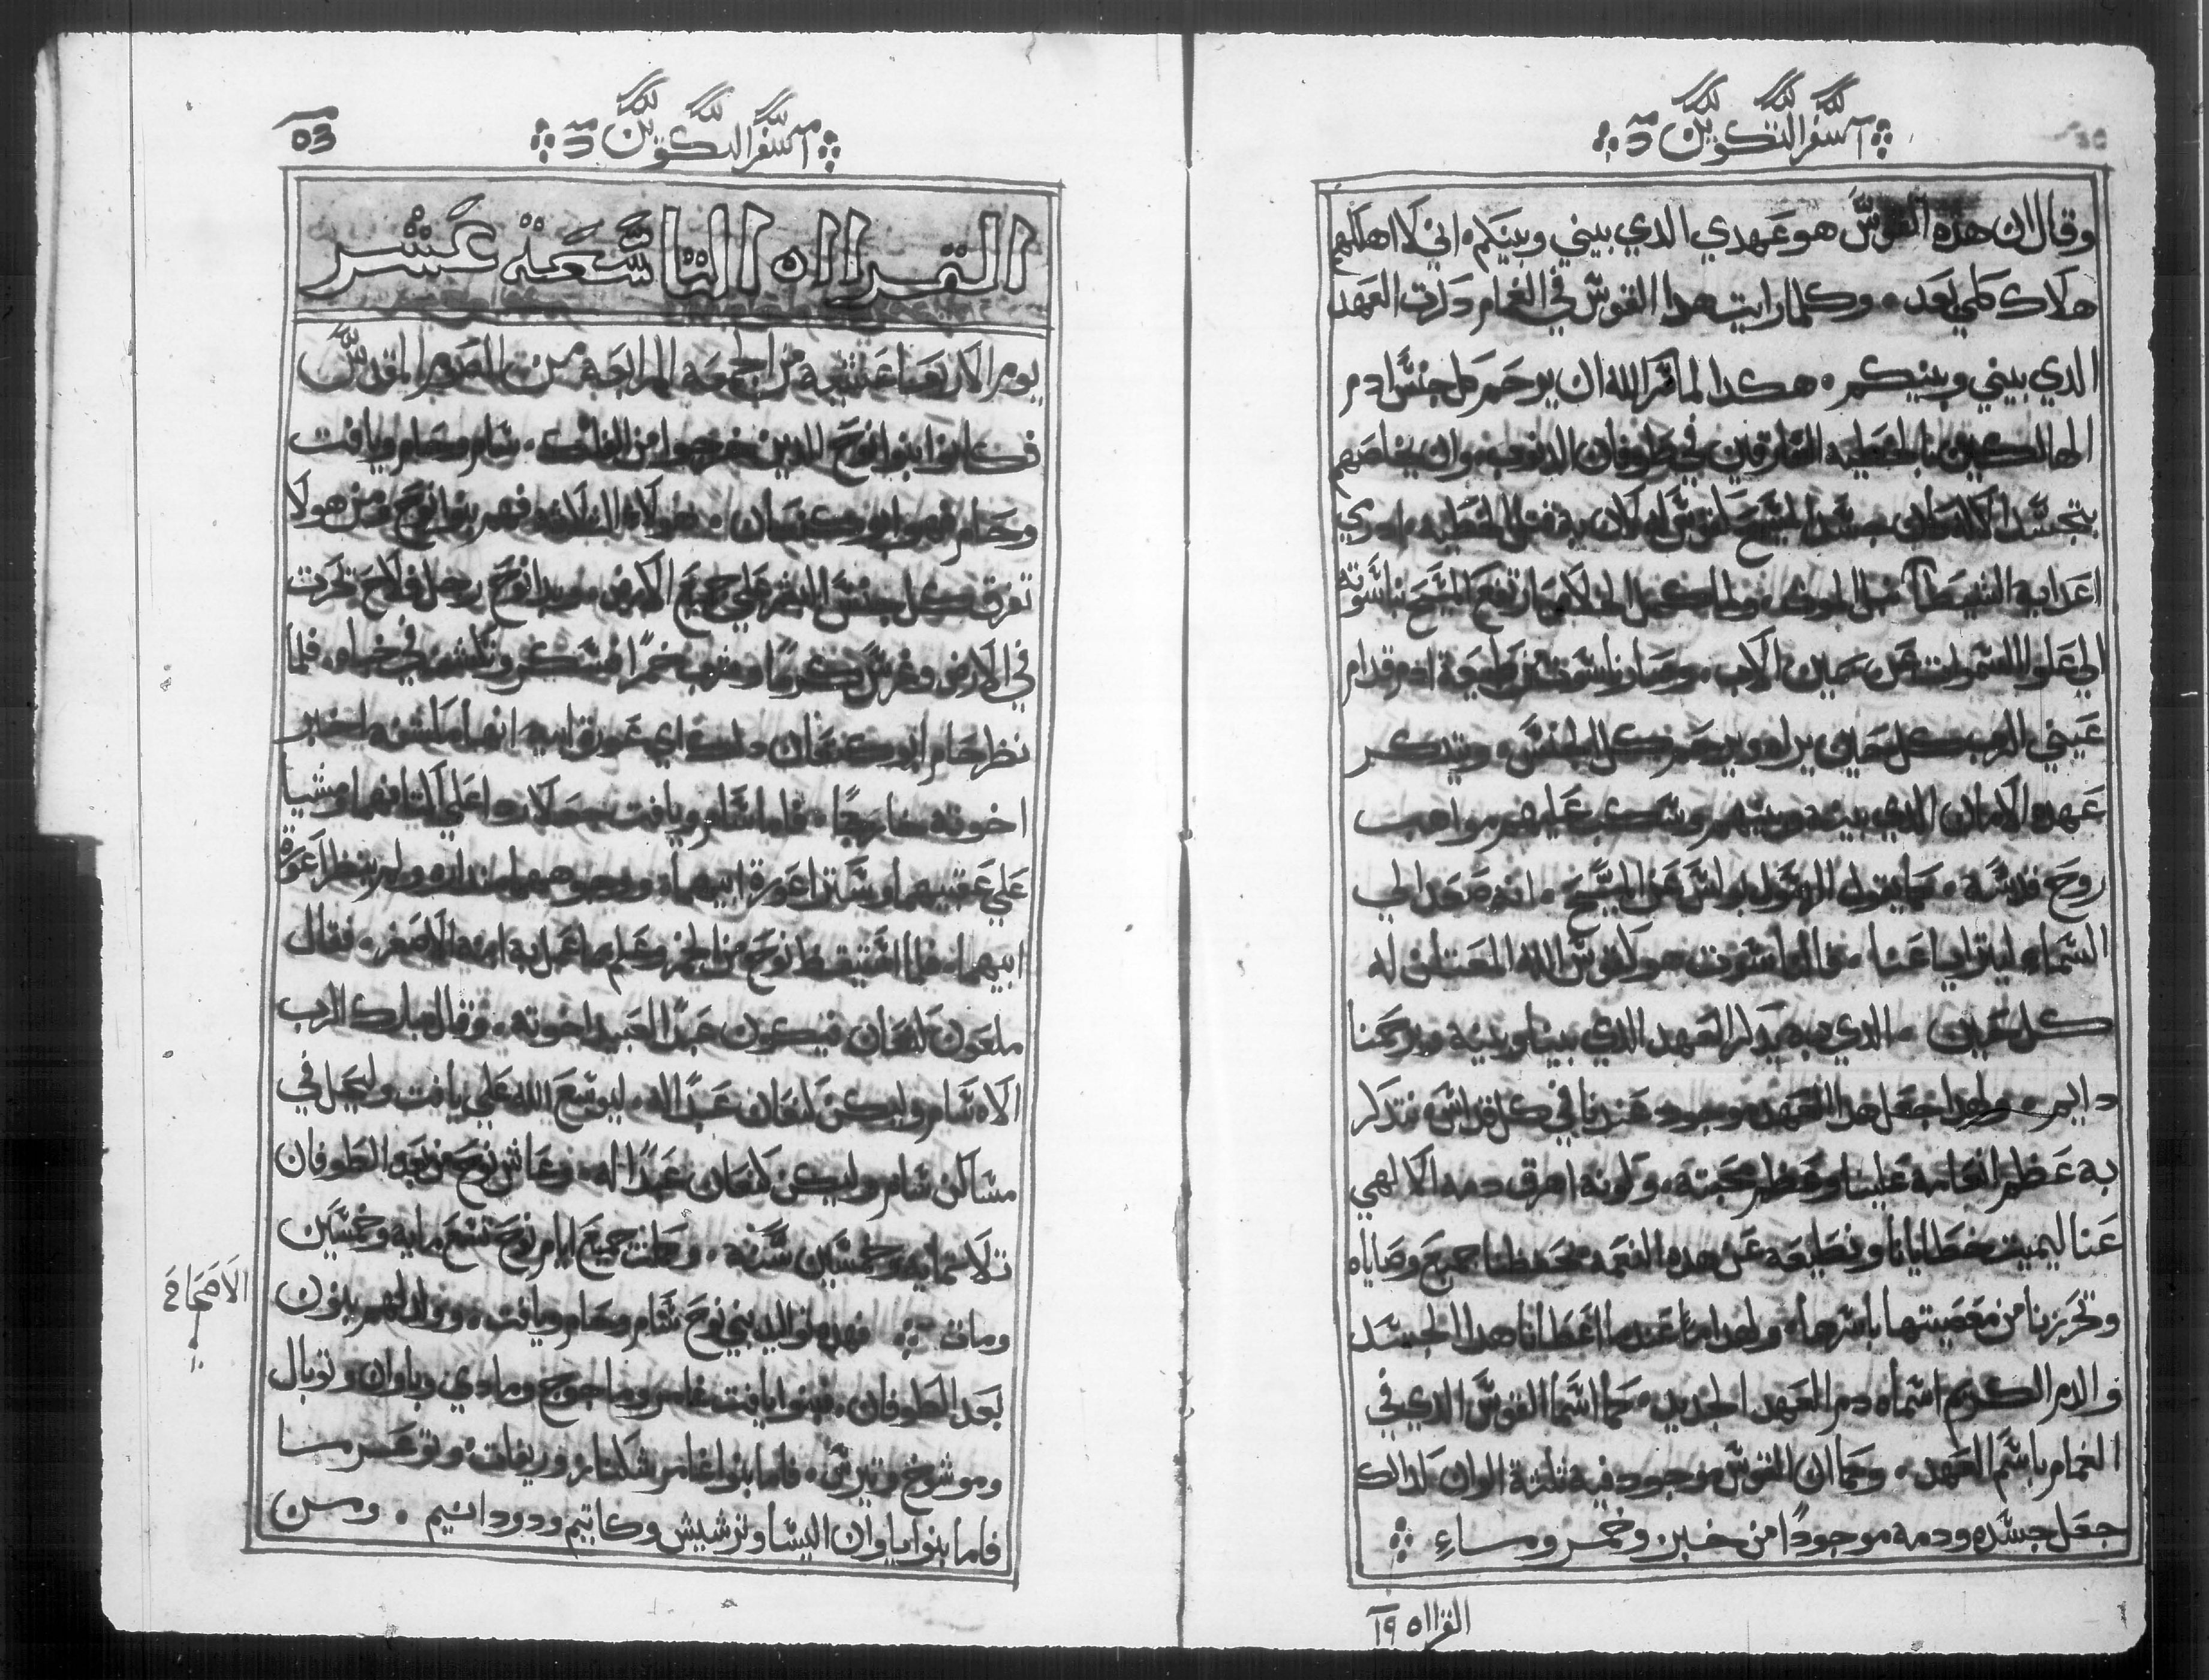 سفر التكوين
وقال ان هذه القوس هو عهدي الدي بيني وبينكم اني لا اهلكهم
هلاك كلي بعد وكلما رايت هدا القوس في الغمام دكرت العهد
الدي بيني وبينكم هكدا لما سر الله ان يرحم كل جنس ادم
الهالكين بالخطيه الغارقين في طوفان الدنوب وان يخلصهم
بتجسد
الي علو السموات عن يمين الاب وصار قدام
عيني الرب كل حين يراه ويرحم كل الجنس ويتدكر
عهده الامان الدي بينه وبينهم ويسكب عليهم مواهب
روح قدسه كما يقول الرسول بولس عن المسيح انه صعد الي
السماء ليترايا عنا هو كقوس الله المعتلن له
كل حين الدي به يدكر العهد الدي بيننا وبينه ويرحمنا
دايم ولهدا جعل هدا العهد موجود عندنا في كل قداس نتدكر
به عظم انعامه علينا وعظم محبته وكونه اهرق دمه الالهي
عنا ليميت خطايانا ونطيعه عن هده النعمه بحفظنا جميع وصاياه
وتحرزنا من معصيتها باسرها ولهدا عندما اعطانا هدا الجسد
والدم الكريم اسماه دم العهد الجديد كما اسما القوس الدي في
الغمام باسم العهد وكما ان القوس موجود فيه تلتة الوان كدالك
جعل جسده ودمه موجودًا من خبز وخمر وماءِ
القراه ١٩
سفر التكوين
٥٣
القرااه التاسعة عشر
يوم الاربعا عشية من الجمعه الرابعه من الصوم المقدس
فكانوا بنوا نوح الدين خرجوا من الفلك سام وحام ويافت
وحام فهو ابو كنعان هولاء التلاته فهم بنوا نوح ومن هولا
تفرق كل جنس البشر علي جميع الارض وبدا نوح رجل فلاح يحرت
في الارض وغرس كرمًا وشرب خمرًا فسكر وتكشف في خباه فلما
نظر حام ابو كنعان دلك اي عورة ابيه انها مكشفه اخبر
اخوته خارجًا فاما سام ويافت جعلا ردا علي اكتافهما ومشيا
علي عقبيهما وسترا عورة ابيهما ووجوههما ولم ينظرا عورة
ابيهما فلما استيقظ نوح من الخمر وعلم ما عمل به ابنه الاصغر فقال
ملعون كنعان فيكون عبد العبيد اخوته وقال مبارك الرب
الاه سام وليكن كنعان عبدًا له ليوسع الله علي يافت وليحل في
مساكن سام وليكن كنعان عبدًا له وعاش نوح من بعد الطوفان
تلاتمايه وخمسين سنه وكانت جميع ايام نوح تسع مايه وخمسين
ومات فهده تواليد بني نوح سام وحام ويافت وولد لهم بنون
بعد الطوفان فبنوا يافت غامر وماجوج ومادي وياوان وتوبال
وموشوخ وتيرس فاما بنوا غامر شكناز وريفات وتوغرما
فاما بنوا ياوان اليسا وترشيش وكاتيم ودودانيم ومن
الاصحاح
١٠